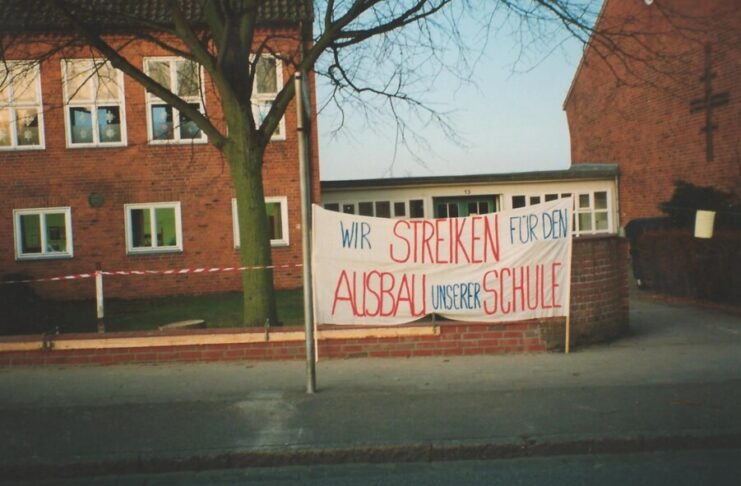 WIR STREIKEN FÜR DEN
AUSBAU UNSERER SCHULE